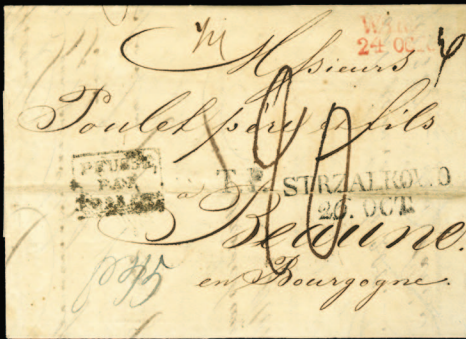 24 OCT
Messieurs
Poulet père & fils
à
PAR
T. F. STRZALKOWO
26. OCT.
Beaune.
en Bourgogne.